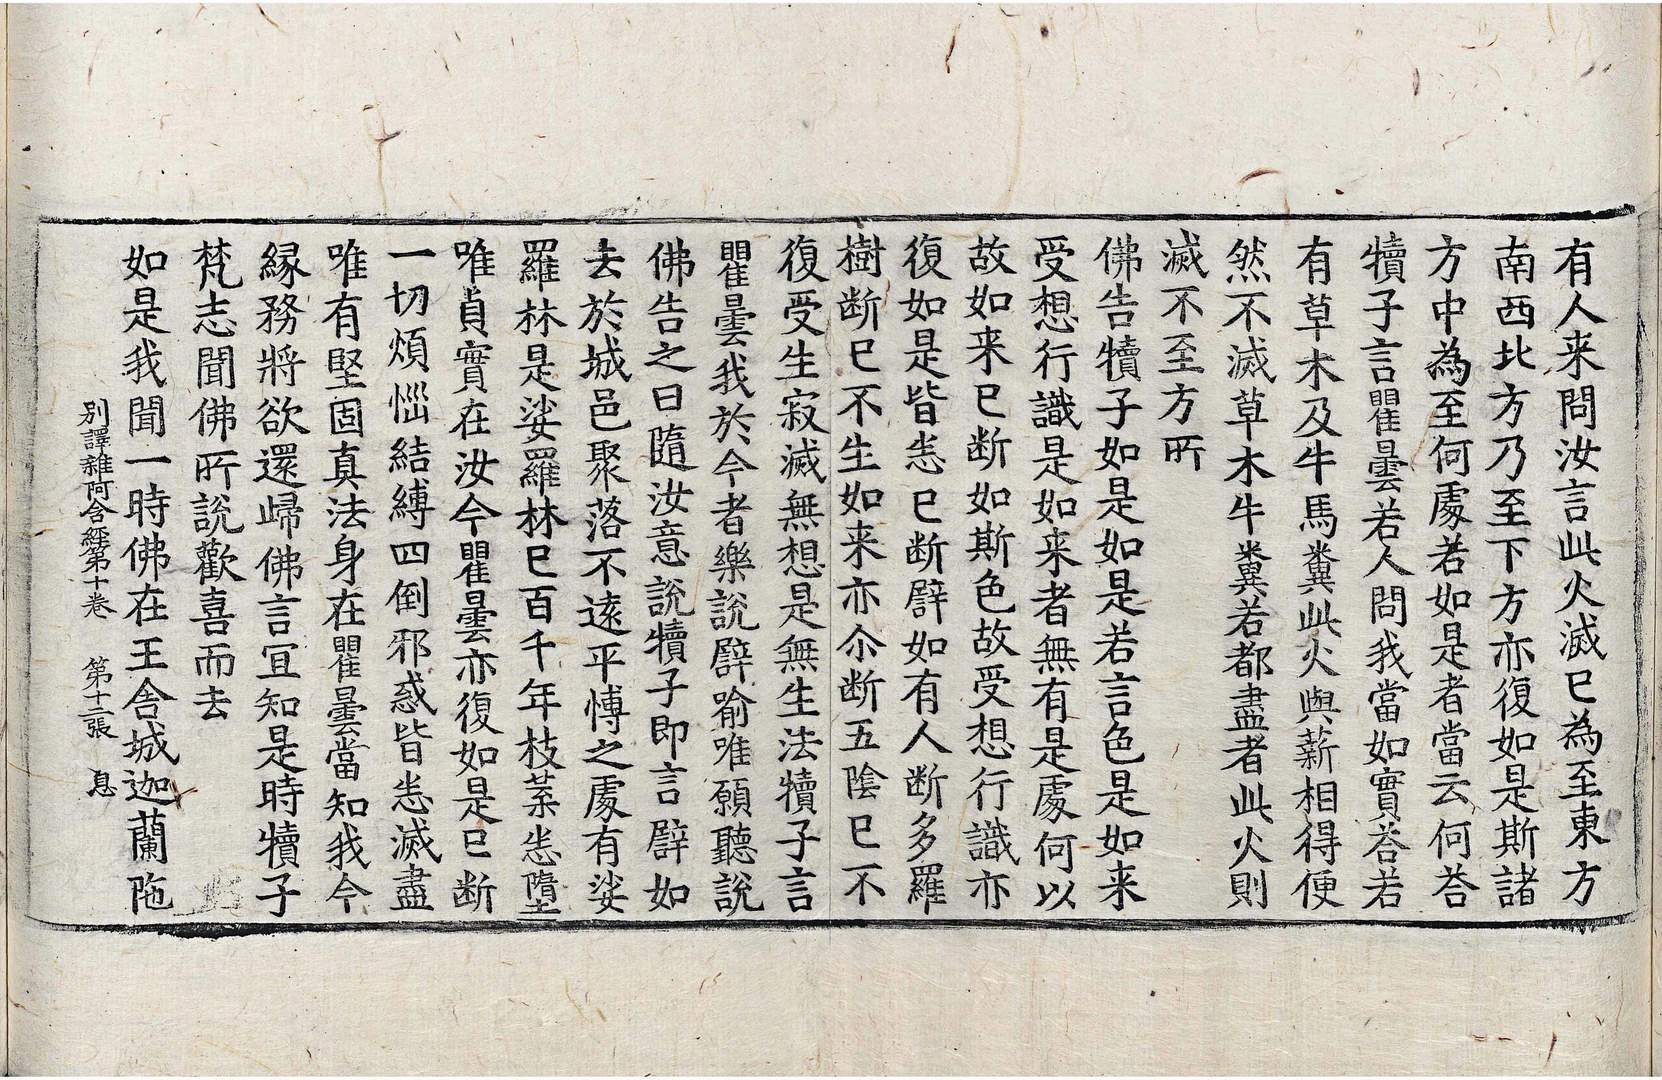 有人来問汝言此火滅已為至東方
南西北方乃至下方亦復如是斯諸
方中為至何處若如是者當云何荅
犢子言瞿曇若人問我當如實荅若
有草木及牛馬糞此火與薪相得便
然不滅草木牛糞若都盡者此火則
滅不至方所
佛告犢子如是如是若言色是如来
受想行識是如来者無有是處何以
故如来已断如斯色故受想行識亦
復如是皆悉已断譬如有人断多羅
樹断已不生如来亦尒断五陰已不
復受生寂滅無想是無生法犢子言
瞿曇我於今者樂說譬喻唯願聽說
佛告之曰隨汝意說犢子即言譬如
去於城邑聚落不遠平博之處有娑
羅林是娑羅林已百千年枝葉悉墮
唯貞實在汝今瞿曇亦復如是已断
一切煩惱結縛四倒邪惑皆悉滅盡
唯有堅固真法身在瞿曇當知我今
緣務將欲還歸佛言宜知是時犢子
梵志聞佛所說歡喜而去
如是我聞一時佛在王舍城迦蘭陁
別譯雜阿含經第十卷 第十二張 息